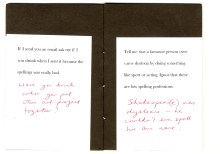 If I send you an email ask me if I
was drunk when I sent it because the
spelling was really bad.
Were you drunk
when you put
this art project
together
Tell me that a famous person over-
came dyslexia by doing something
like sport or acting. Ignor that these
are less spelling professions.
Shakespeare(?) was
dyslexic - he
couldn't even spell
his own name